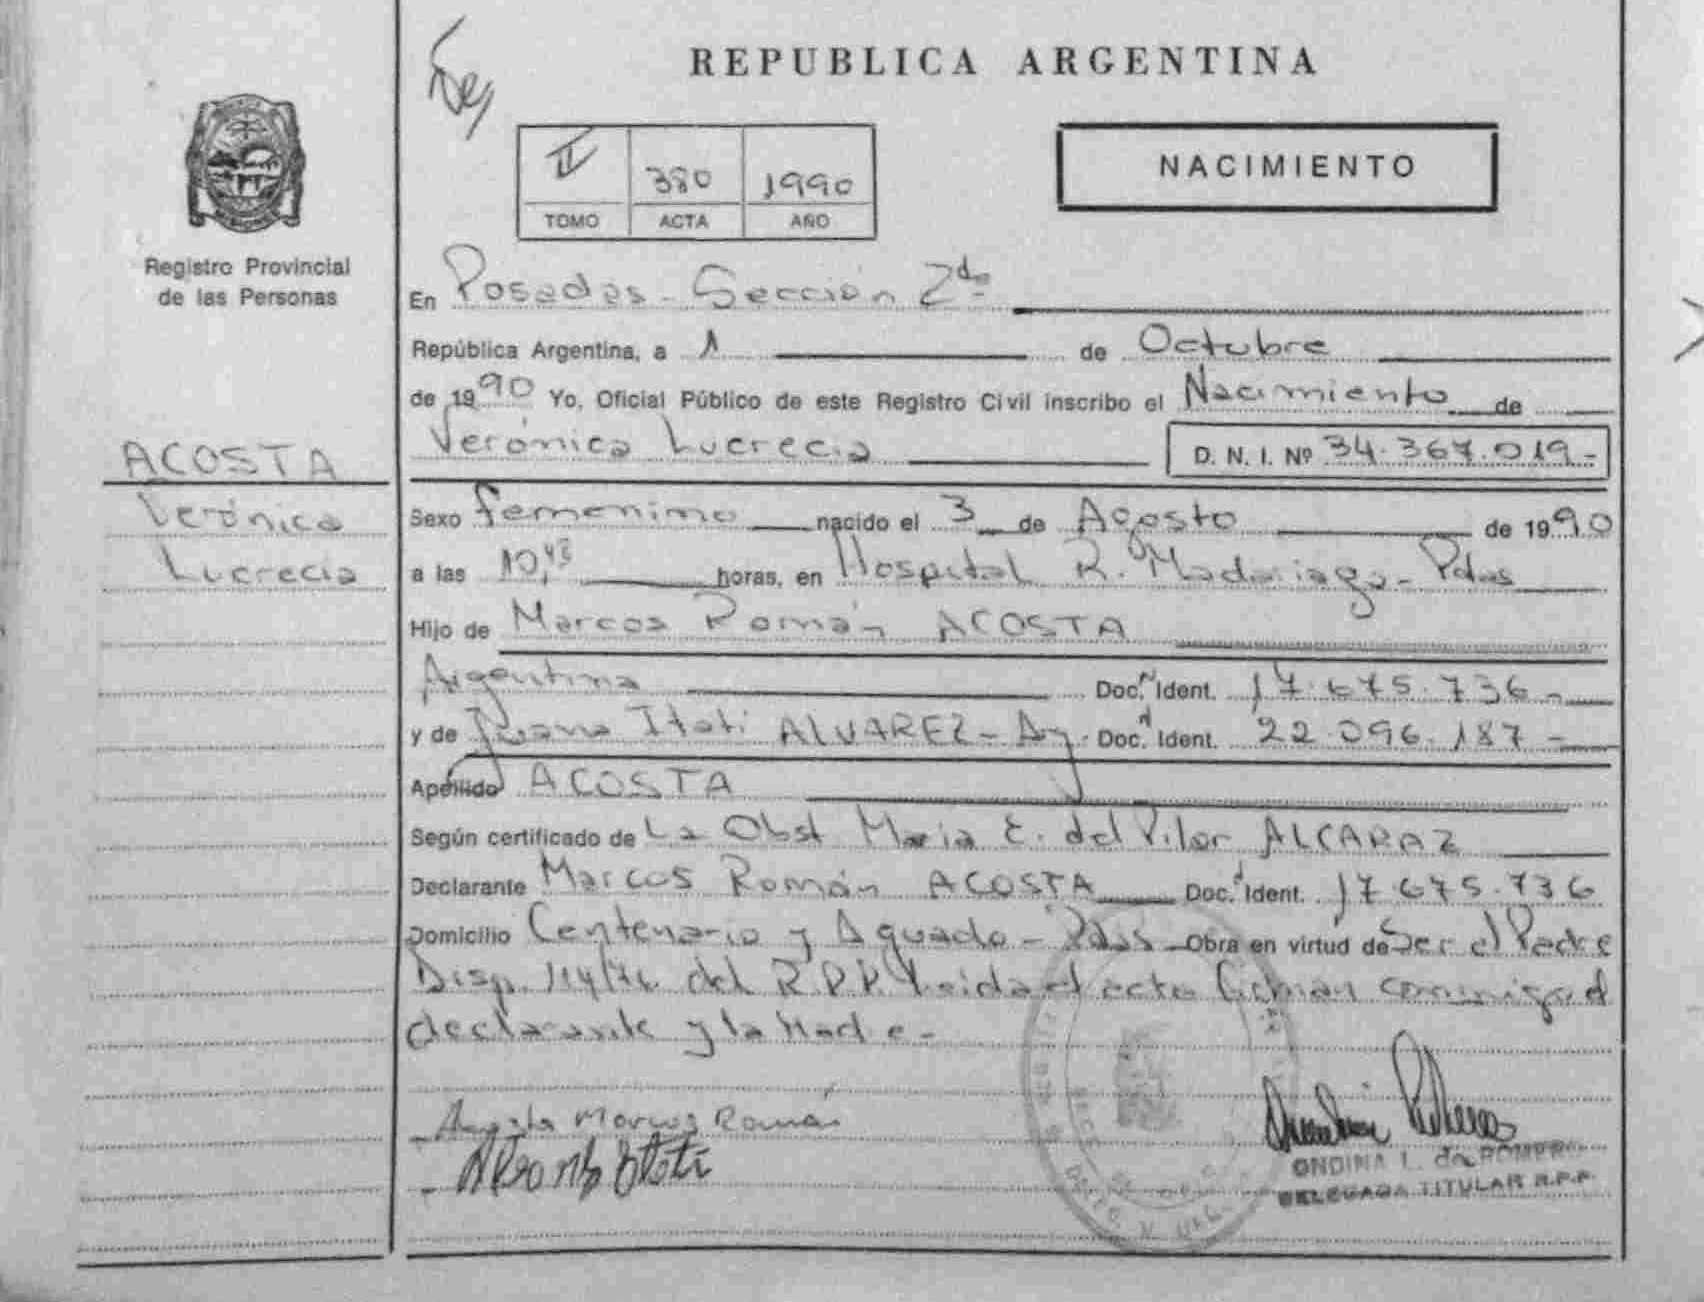 REPUBLICA ARGENTINA
II 380 1990
TOMO ACTA AÑO
NACIMIENTO
Registro Provincial
de las Personas
ACOSTA
Verónica
Lucrecia
En Posadas - Sección 2da
República Argentina, a 1 de Octubre
de 1990 Yo, Oficial Público de este Registro Civil inscribo el Nacimiento de
Verónica Lucrecia D. N. I. Nº 34.367.019-
Sexo femenino nacido el 3 de Agosto de 1990
a las horas, en Hospital R. Madariaga - Pdas
Hijo de Marcos Román ACOSTA
Argentina Doc. Ident. 17.675.736-
y de Juana Itatí ALVAREZ - Arg. Doc. Ident. 22.096.187-
Apellido ACOSTA
Según certificado de La Obst María E. del Pilar ALCARAZ
Declarante Marcos Román ACOSTA Doc. Ident. 17.675.736
Domicilio Centenario y Aguado - Pdas Obra en virtud de Ser el Padre
Disp. 114/76 del R.P.P. Leida el acta firman conmigo el
declarante y la Madre-
Marcos Román
Itatí
ONDINA L. de ROMERO
DELEGADA TITULAR R.P.P.